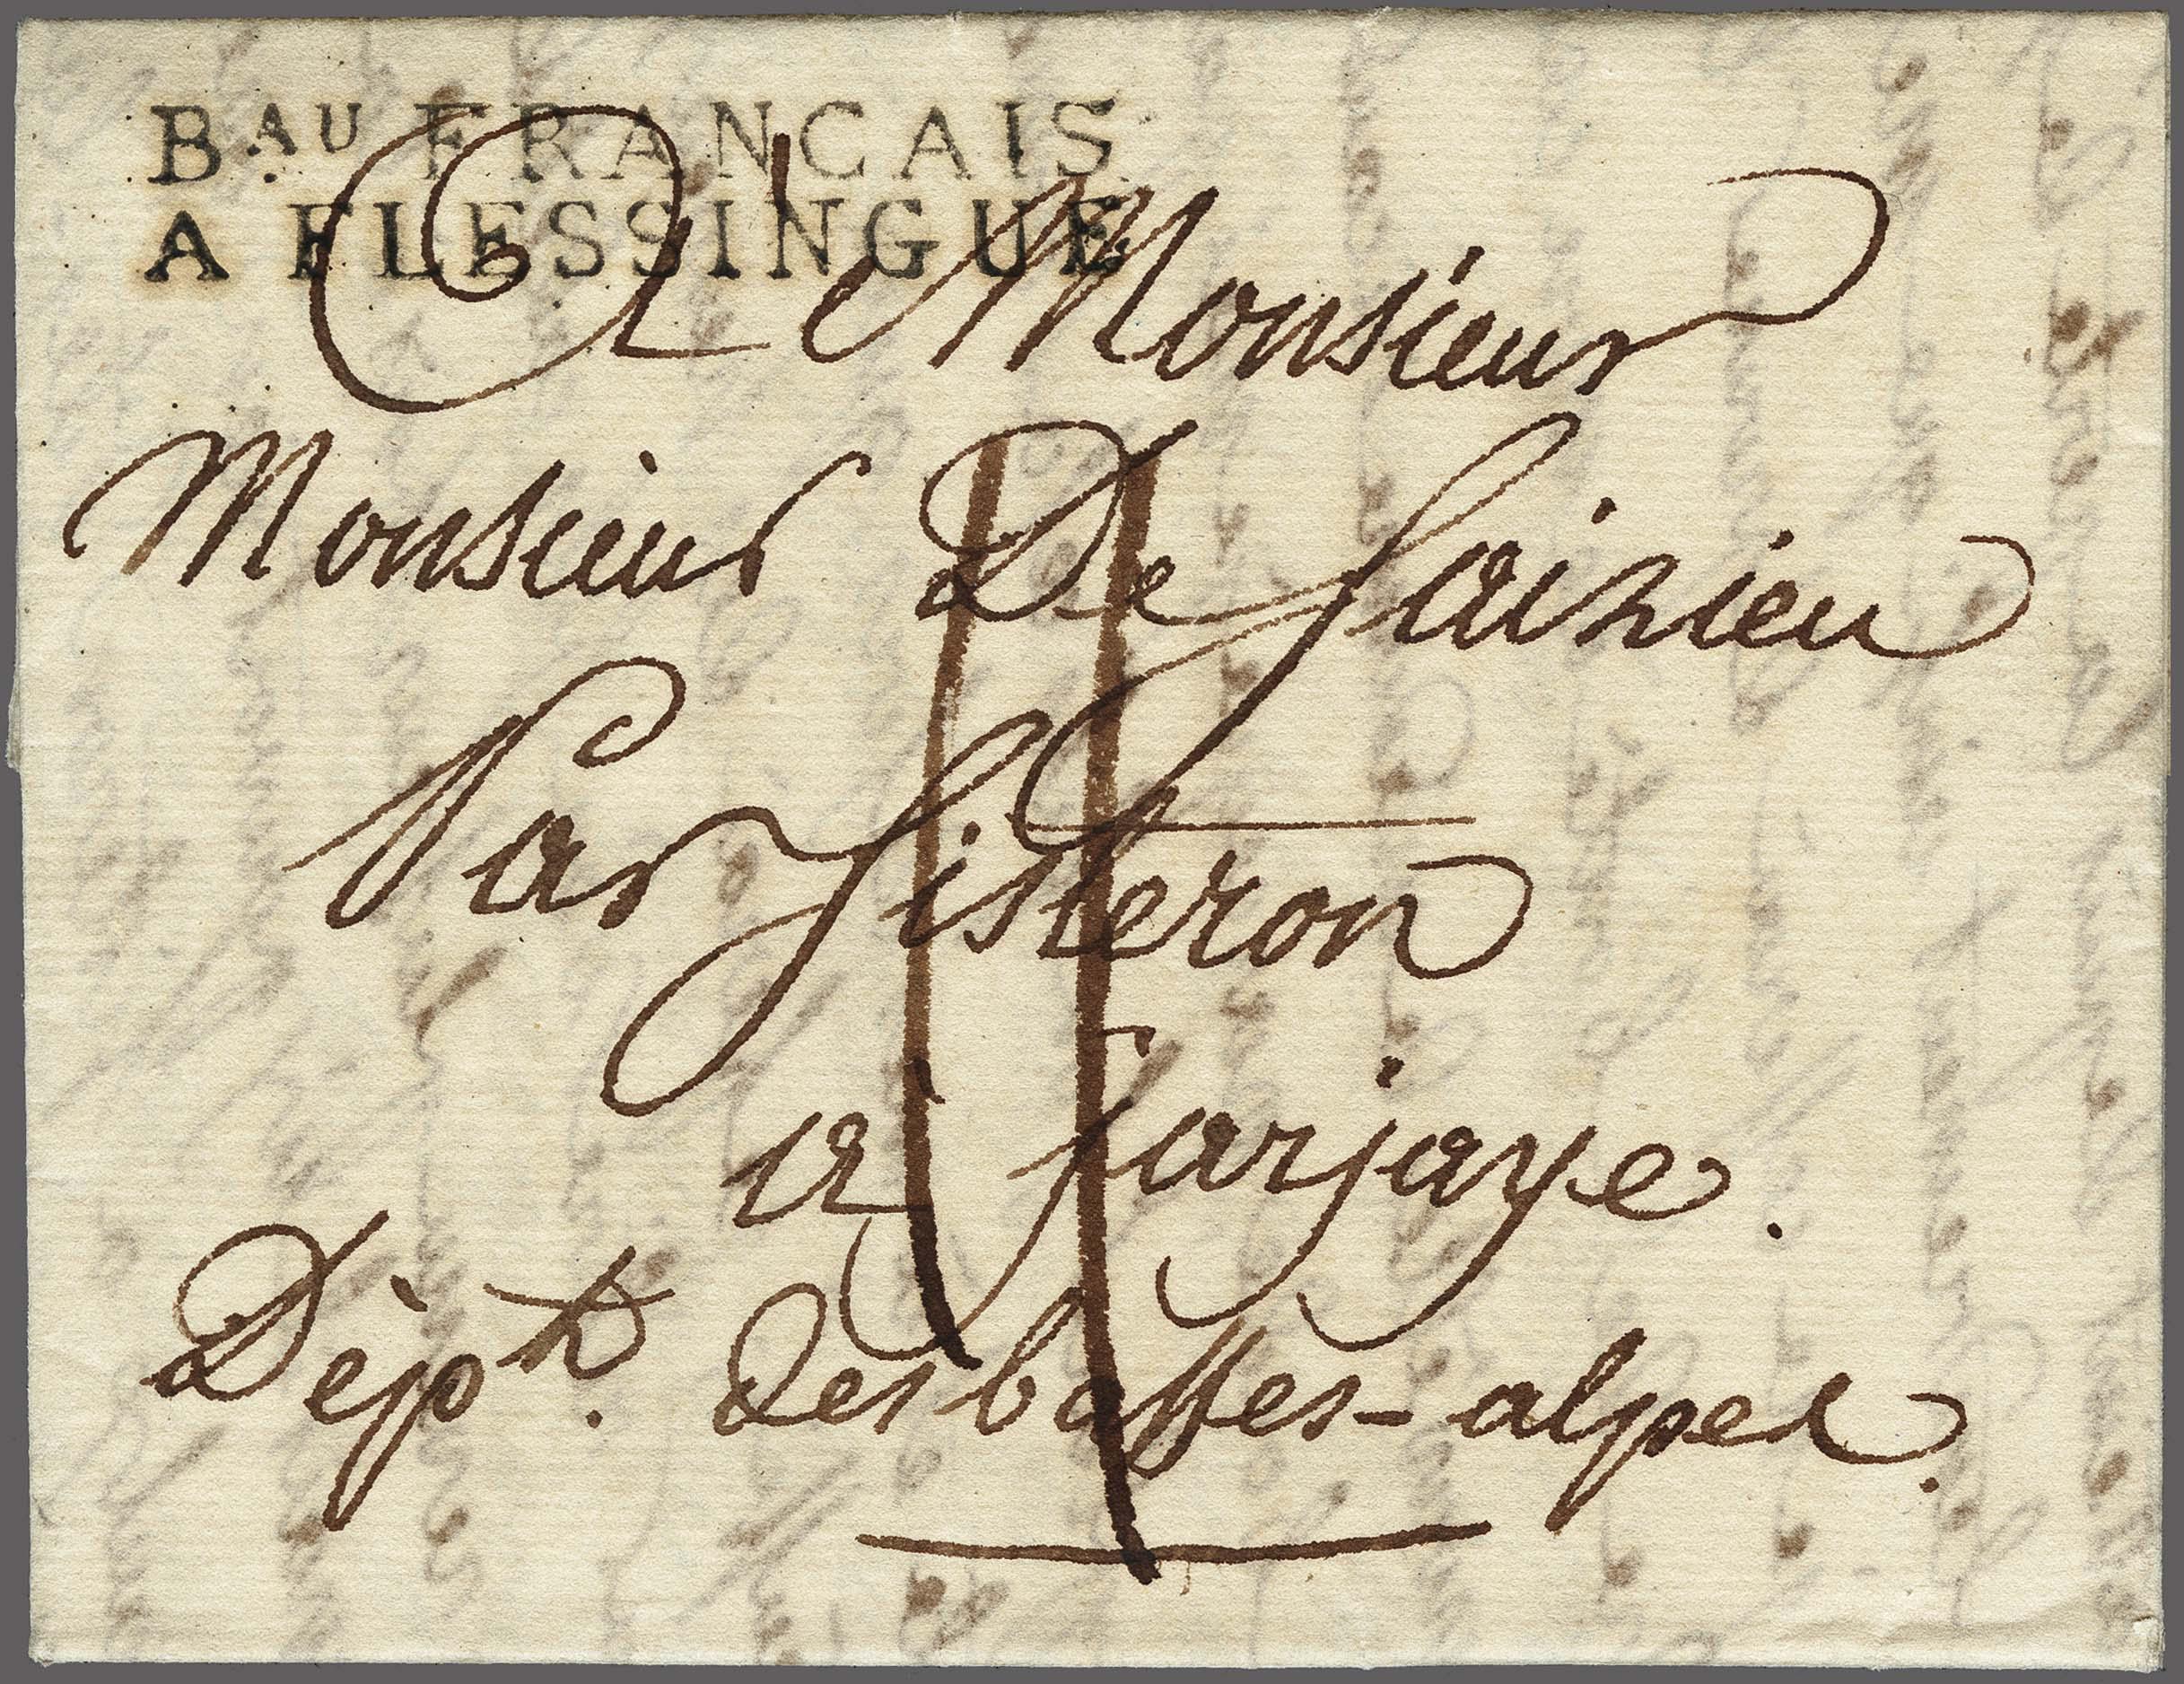 BAU FRANCAIS
A FLESSINGUE
A Monsieur
Monsieur De Saizieu
Par Sisteron
à Sarjaye.
Dèpt. des basses-alpes.